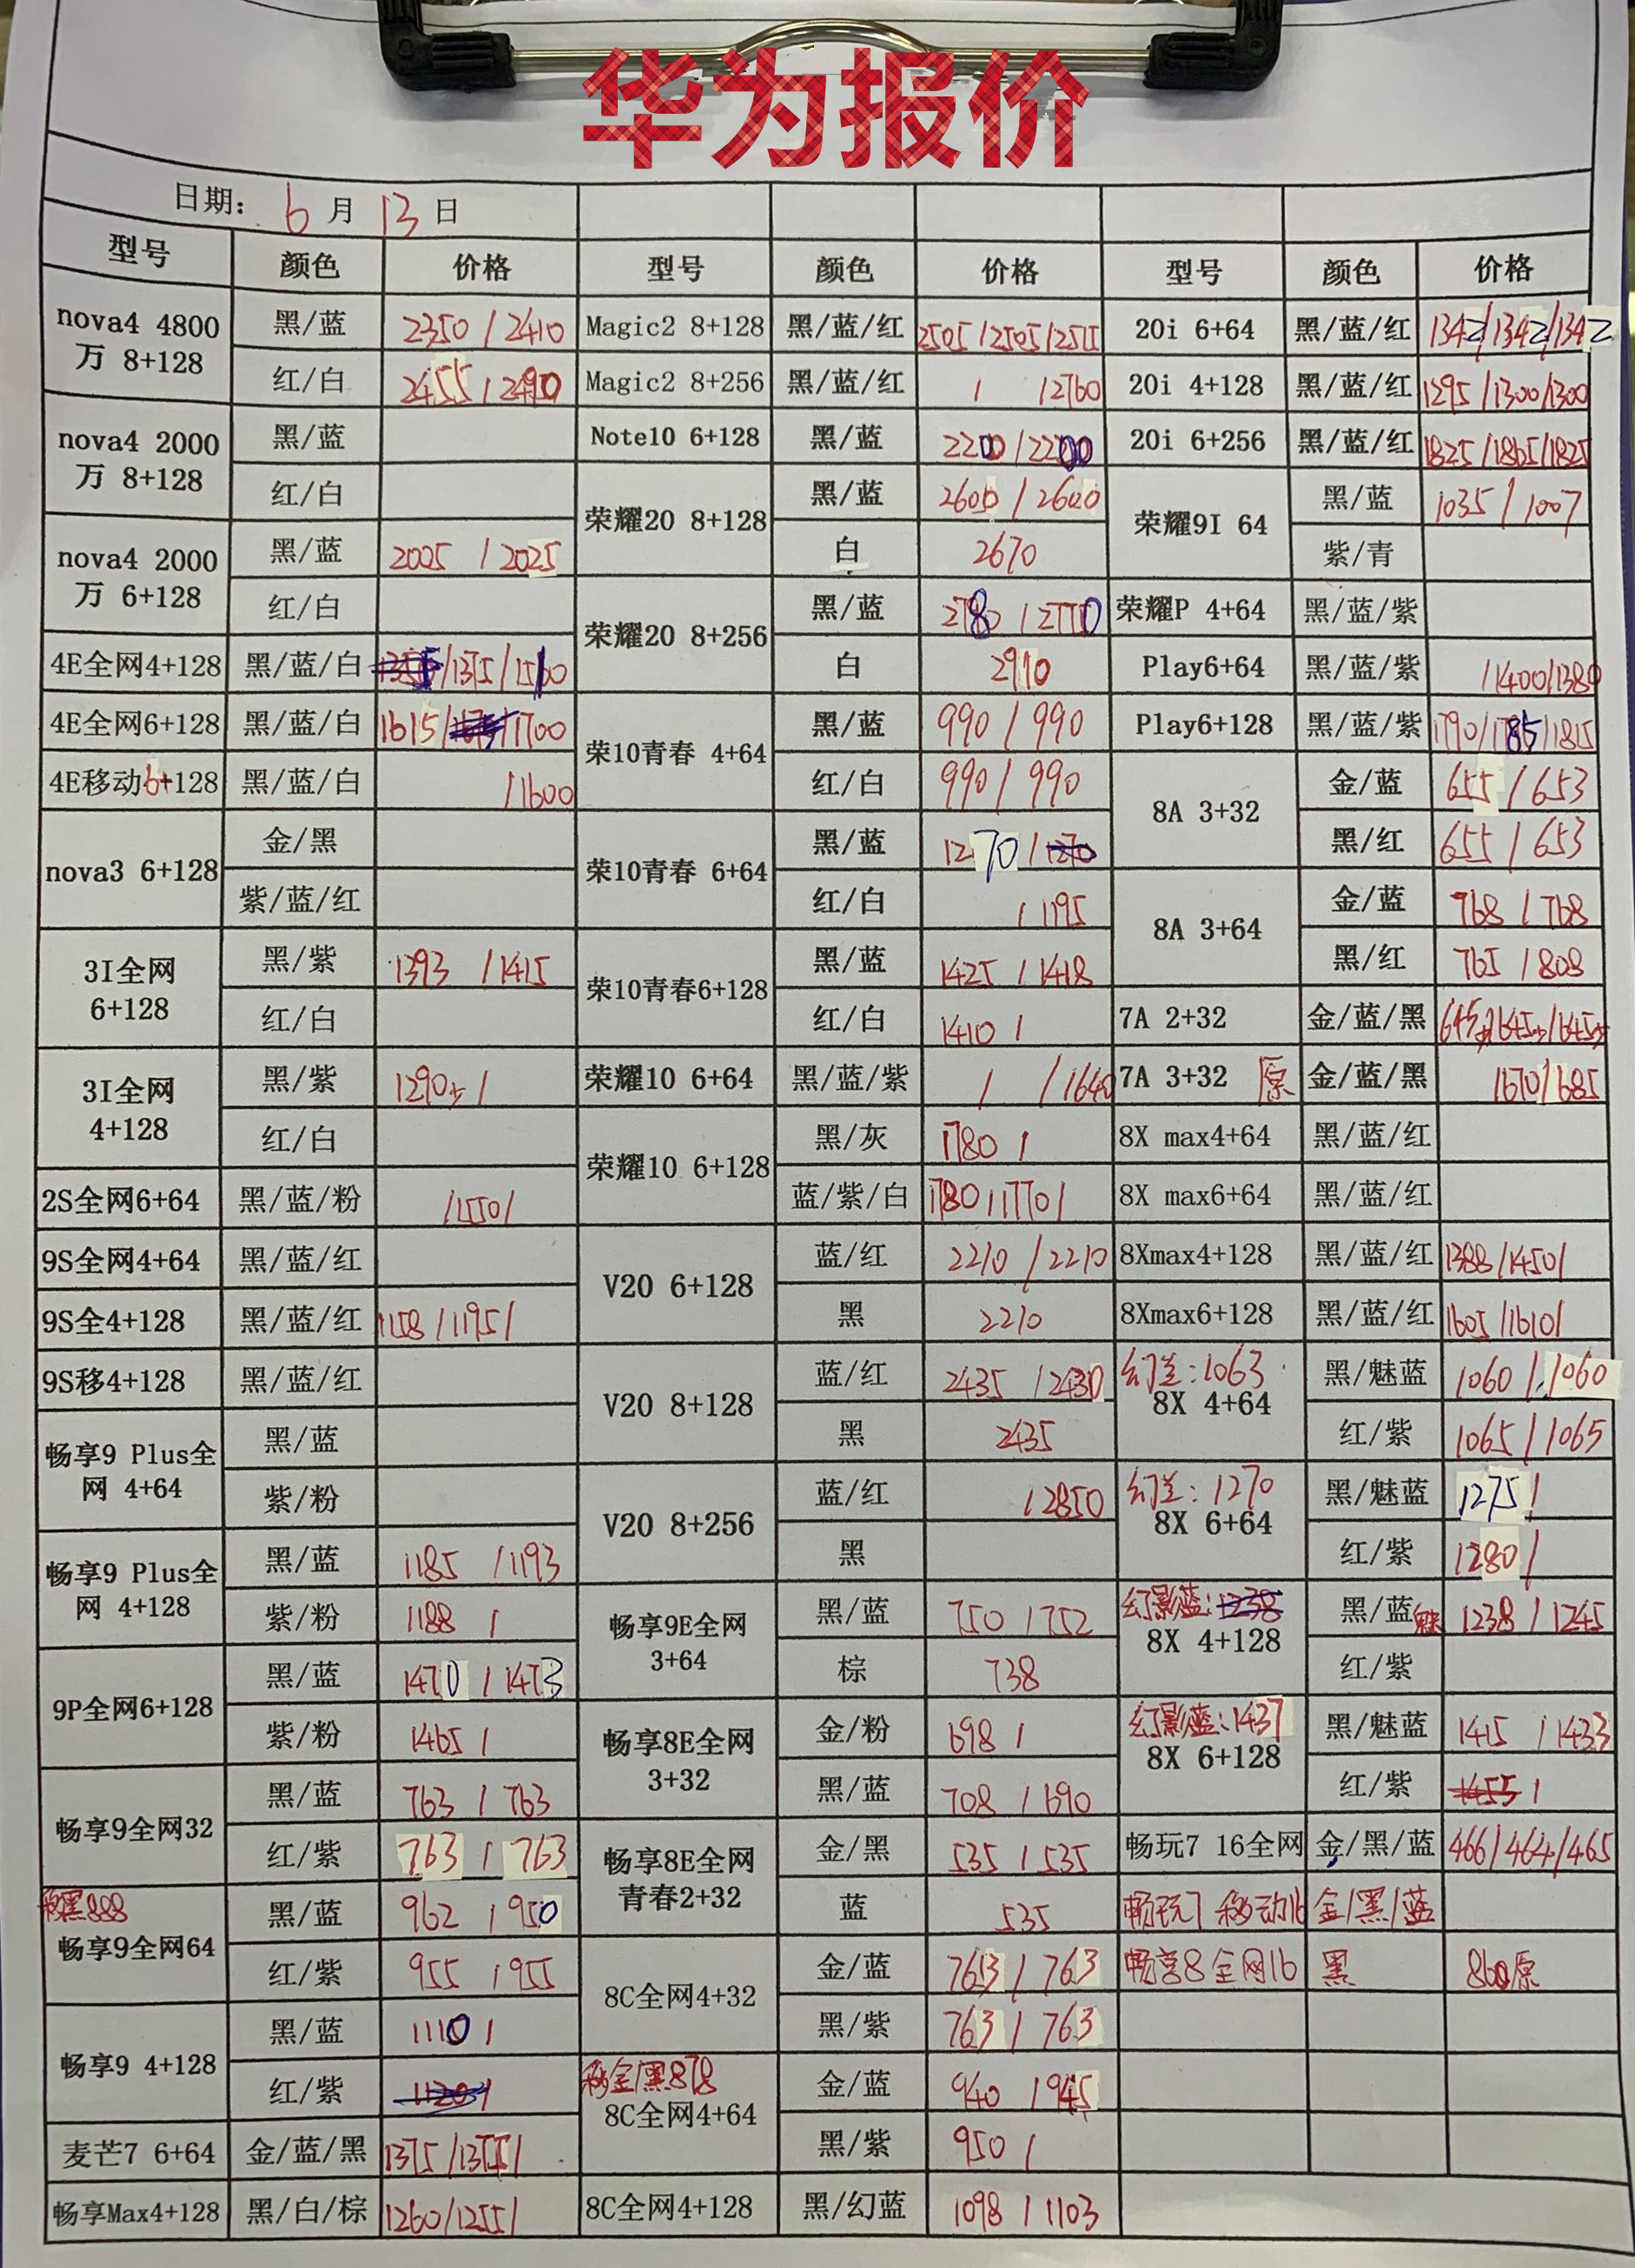 华为报价
日期: 6 月 13 日
型号 颜色 价格 型号 颜色 价格 型号 颜色 价格
nova4 4800万 8+128 黑/蓝 2350 / 2410 Magic2 8+128 黑/蓝/红 2505 / 2505 / 2515 20i 6+64 黑/蓝/红 1342/1342/1342
红/白 2455 / 2490 Magic2 8+256 黑/蓝/红 / /2760 20i 4+128 黑/蓝/红 1295/1300/1300
nova4 2000万 8+128 黑/蓝 Note10 6+128 黑/蓝 2200 / 2200 20i 6+256 黑/蓝/红 1825/1865/1825
红/白 荣耀20 8+128 黑/蓝 2600 / 2600 荣耀9I 64 黑/蓝 1035 / 1007
nova4 2000万 6+128 黑/蓝 2005 / 2025 白 2670 紫/青
红/白 荣耀20 8+256 黑/蓝 2780 / 2770 荣耀P 4+64 黑/蓝/紫
4E全网4+128 黑/蓝/白 /1375/1560 白 2910 Play6+64 黑/蓝/紫 /1400/1380
4E全网6+128 黑/蓝/白 1615/ /1700 荣10青春 4+64 黑/蓝 990 / 990 Play6+128 黑/蓝/紫 1790/1785/1815
4E移动6+128 黑/蓝/白 /1600 红/白 990 / 990 8A 3+32 金/蓝 655 / 653
nova3 6+128 金/黑 荣10青春 6+64 黑/蓝 1270 / 1270 黑/红 655 / 653
紫/蓝/红 红/白 / 1195 8A 3+64 金/蓝 768 / 768
3I全网 6+128 黑/紫 1393 / 1415 荣10青春6+128 黑/蓝 1425 / 1418 黑/红 765 / 808
红/白 红/白 1410 / 7A 2+32 金/蓝/黑 645少/645少/645少
3I全网 4+128 黑/紫 1290少 / 荣耀10 6+64 黑/蓝/紫 / /1640 7A 3+32 原 金/蓝/黑 /670/685
红/白 荣耀10 6+128 黑/灰 1780 / 8X max4+64 黑/蓝/红
2S全网6+64 黑/蓝/粉 /1550/ 蓝/紫/白 1780/1770/ 8X max6+64 黑/蓝/红
9S全网4+64 黑/蓝/红 V20 6+128 蓝/红 2210 / 2210 8Xmax4+128 黑/蓝/红 1388/1450/
9S全4+128 黑/蓝/红 1158/1195/ 黑 2210 8Xmax6+128 黑/蓝/红 1605/1610/
9S移4+128 黑/蓝/红 V20 8+128 蓝/红 2435 / 2430 幻兰:1063 8X 4+64 黑/魅蓝 1060 / 1060
畅享9 Plus全网 4+64 黑/蓝 黑 2435 红/紫 1065 / 1065
紫/粉 V20 8+256 蓝/红 / 2850 幻兰:1270 8X 6+64 黑/魅蓝 1275 /
畅享9 Plus全网 4+128 黑/蓝 1185 / 1193 黑 红/紫 1280 /
紫/粉 1188 / 畅享9E全网 3+64 黑/蓝 750 / 752 幻影蓝:1238 8X 4+128 黑/蓝魅 1238 / 1245
9P全网6+128 黑/蓝 1470 / 1473 棕 738 红/紫
紫/粉 1465 / 畅享8E全网 3+32 金/粉 698 / 幻影蓝:1437 8X 6+128 黑/魅蓝 1415 / 1433
畅享9全网32 黑/蓝 763 / 763 黑/蓝 708 / 690 红/紫 1455 /
红/紫 763 / 763 畅享8E全网 青春2+32 金/黑 535 / 535 畅玩7 16全网 金/黑/蓝 466/464/465
移黑888 畅享9全网64 黑/蓝 962 / 950 蓝 535 畅玩7 移动16 金/黑/蓝
红/紫 955 / 955 8C全网4+32 金/蓝 763 / 763 畅享8全网16 黑 860原
畅享9 4+128 黑/蓝 1110 / 黑/紫 763 / 763
红/紫 1120 / 移金/黑878 8C全网4+64 金/蓝 940 / 945
麦芒7 6+64 金/蓝/黑 1375/1355/ 黑/紫 950 /
畅享Max4+128 黑/白/棕 1260/1255/ 8C全网4+128 黑/幻蓝 1098 / 1103